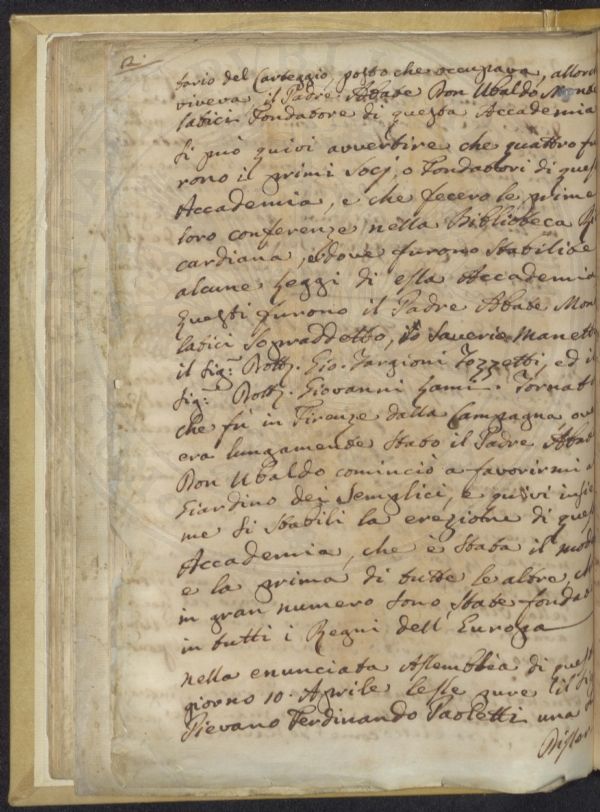 2.
tario del Carteggio, posto che occupava, allora
viveva il Padre Abate Don Ubaldo Monte
latici Fondatore di questa Accademia
Si può quivi avvertire che quattro fu
rono il primi Socj, o Fondatori di ques
Accademia, e che fecero le prime
loro conferenze nella Biblioteca Ri
cardiana, e dove furono stabilite
alcune Leggi di essa Accademia
Questi furono il Padre Abate Mon
latici Sopraddetto, io Saverio Manett
il Sig.r Dott. Gio. Targioni Tozzetti, ed i
Sig.r Dott. Giovanni Lami. Tornat
che fù in Firenze dalla Campagna ov
era lungamente stato il Padre Abat
Don Ubaldo cominciò a favorirmi a
Giardino dei Semplici, e quivi insie
me si stabilì la erezione di ques
Accademia, che è stata il mod
e la prima di tutte le altre, ch
in gran numero sono state fondat
in tutti i Regni dell'Europa
nella enunciata Assemblèa di quest
giorno 10. Aprile lesse pure il Sig
Pievano Ferdinando Paoletti una
Disser